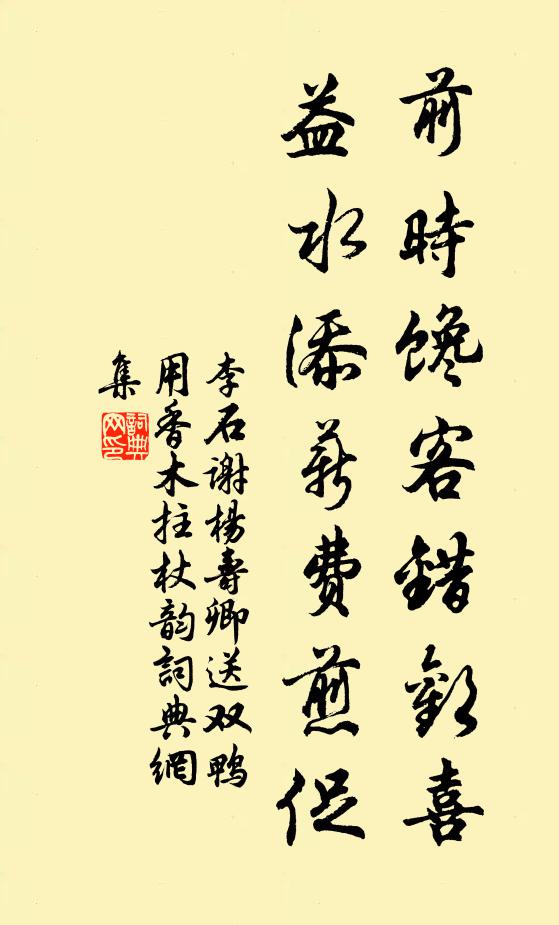 前時馋客錯歡喜
益水添薪費煎促
李石谢楊壽卿送双鴨
用香木拄杖韵詞典網
集
詞典
网印